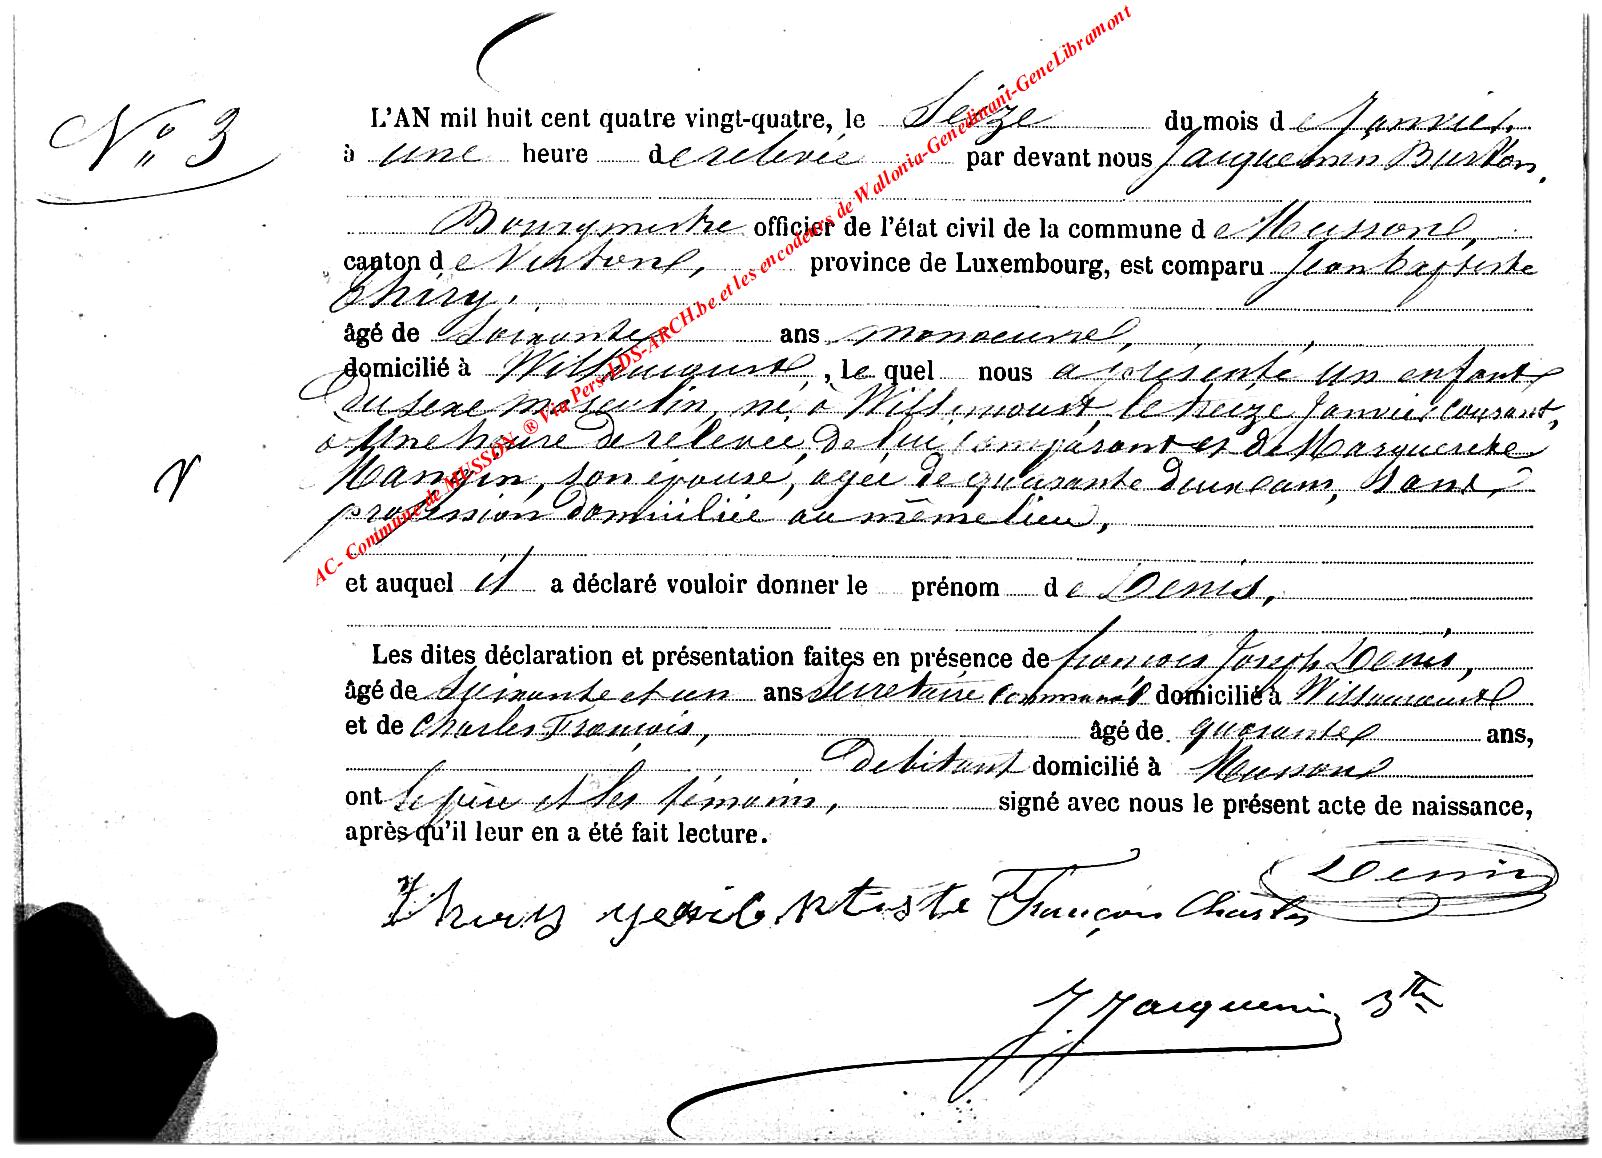 N° 3
L'AN mil huit cent quatre vingt-quatre, le Seize du mois de Janvier,
à une heure de relevée par devant nous Jacquemin Burton,
Bourgmestre officier de l'état civil de la commune de Musson,
canton de Virton, province de Luxembourg, est comparu Jean Baptiste
Thiry,
âgé de Soixante ans manoeuvre,
domicilié à Willancourt, le quel nous a présenté un enfant
du sexe masculin, né à Willancourt, le treize Janvier courant,
à Une heure de relevée, de lui comparant et de Marguerite
Mangin, son épouse, agée de quarante deux ans, sans
profession domiciliée au même lieu,
et auquel il a déclaré vouloir donner le prénom de Denis,
Les dites déclaration et présentation faites en présence de françois Joseph Denis,
âgé de Soixante et un ans Secrétaire communal domicilié à Willancourt
et de Charles François, âgé de quarante ans,
débitant domicilié à Musson
ont le père et les témoins, signé avec nous le présent acte de naissance,
après qu'il leur en a été fait lecture.
Denis
Thiry François Charles
J. Jacquemin
AC- Commune de MUSSON ® Via Pers-LDS-ARCH.be et les encodeurs de Wallonia-Genedinant-GeneLibramont